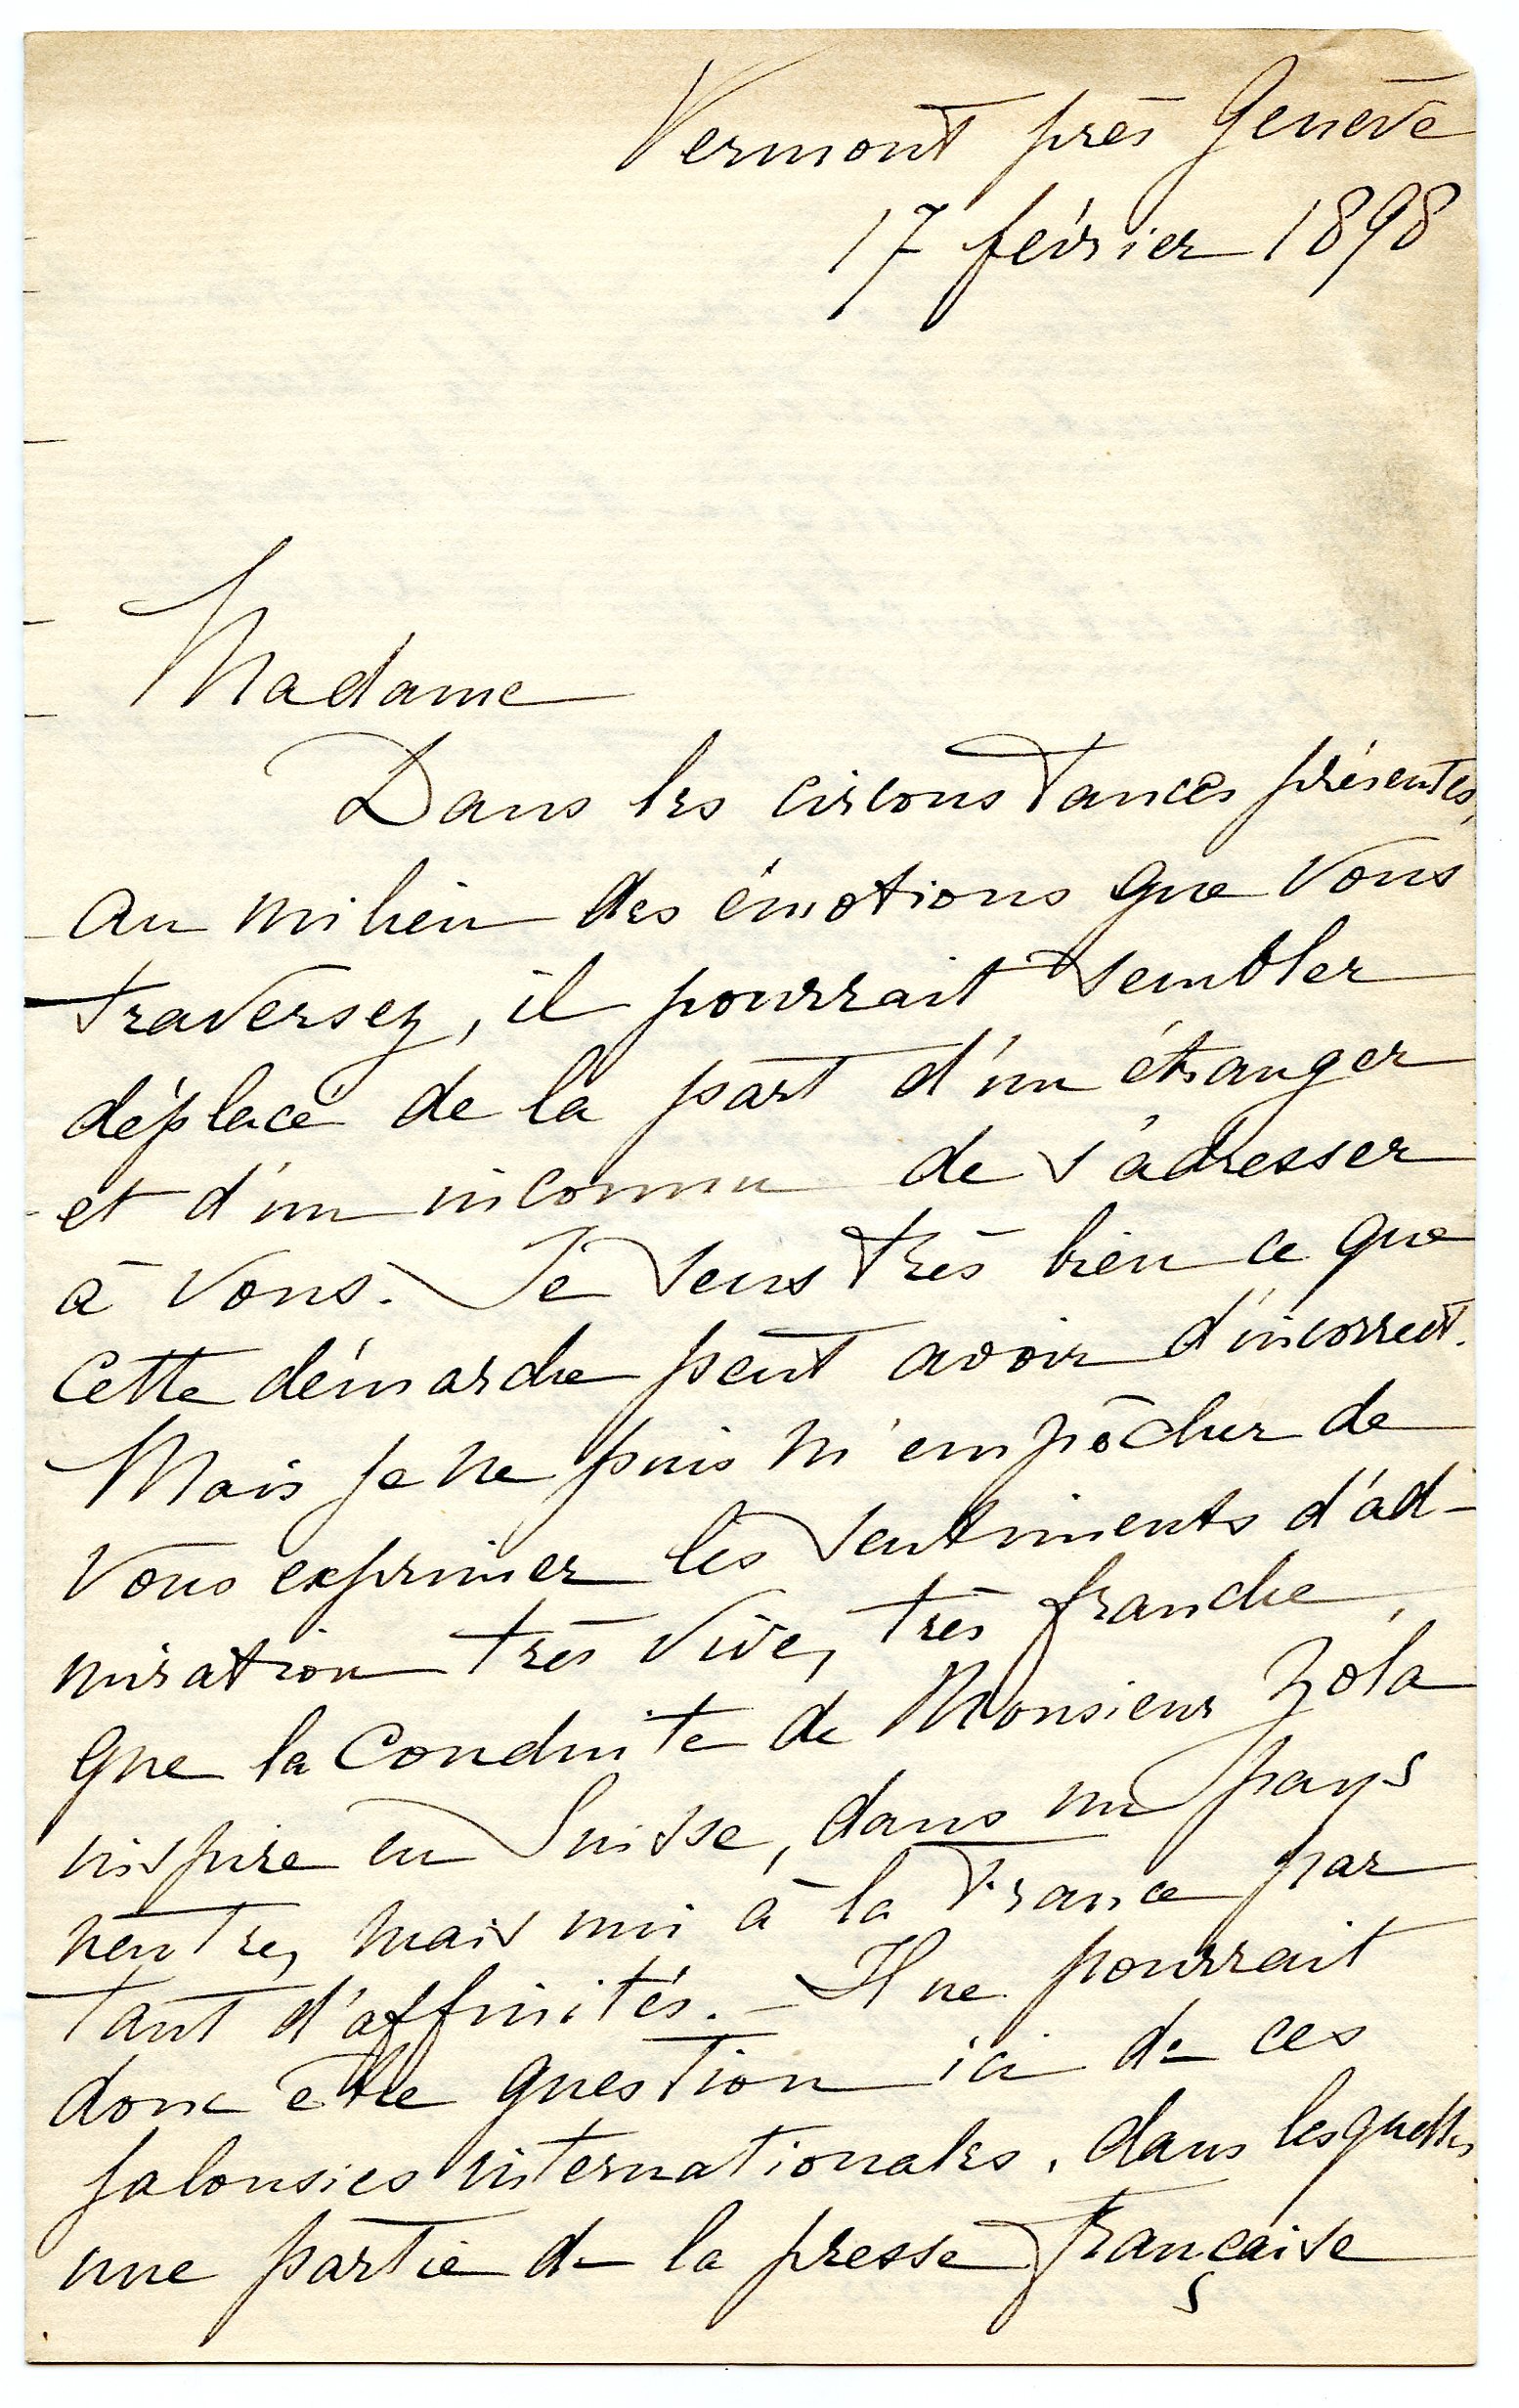 Vermont près Genève
17 février 1898
Madame
Dans les circonstances présentes,
au milieu des émotions que vous
traversez, il pourrait sembler
déplacé de la part d'un étranger
et d'un inconnu de s'adresser
à vous. Je sens très bien ce que
cette démarche peut avoir d'incorrect.
Mais je ne puis m'empêcher de
vous exprimer les sentiments d'ad-
miration très vive, très franche,
que la conduite de Monsieur Zola
inspire en Suisse, dans un pays
neutre, mais uni à la France par
tant d'affinités. – Il ne pourrait
donc être question ici de ces
jalousies internationales, dans lesquelles
une partie de la presse française